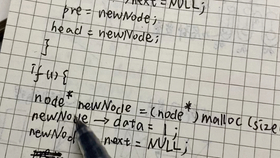 next = NULL;
pre = newNode;
head = newNode;
}
if (t) {
node* newNode = (node*) malloc (size
newNode → data = 1;
next = NULL;